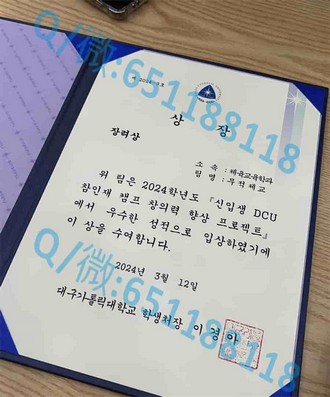 Q/微:651188118
상 장
장려상
소 속 : 체육교육학과
팀 명 : 무적태교
위 팀은 2024학년도 『신입생 DCU
참인재 캠프 창의력 향상 프로젝트』
에서 우수한 성적으로 입상하였기에
이 상을 수여합니다.
2024년 3월 12일
대구가톨릭대학교 학생처장 이 경
Q/微:651188118